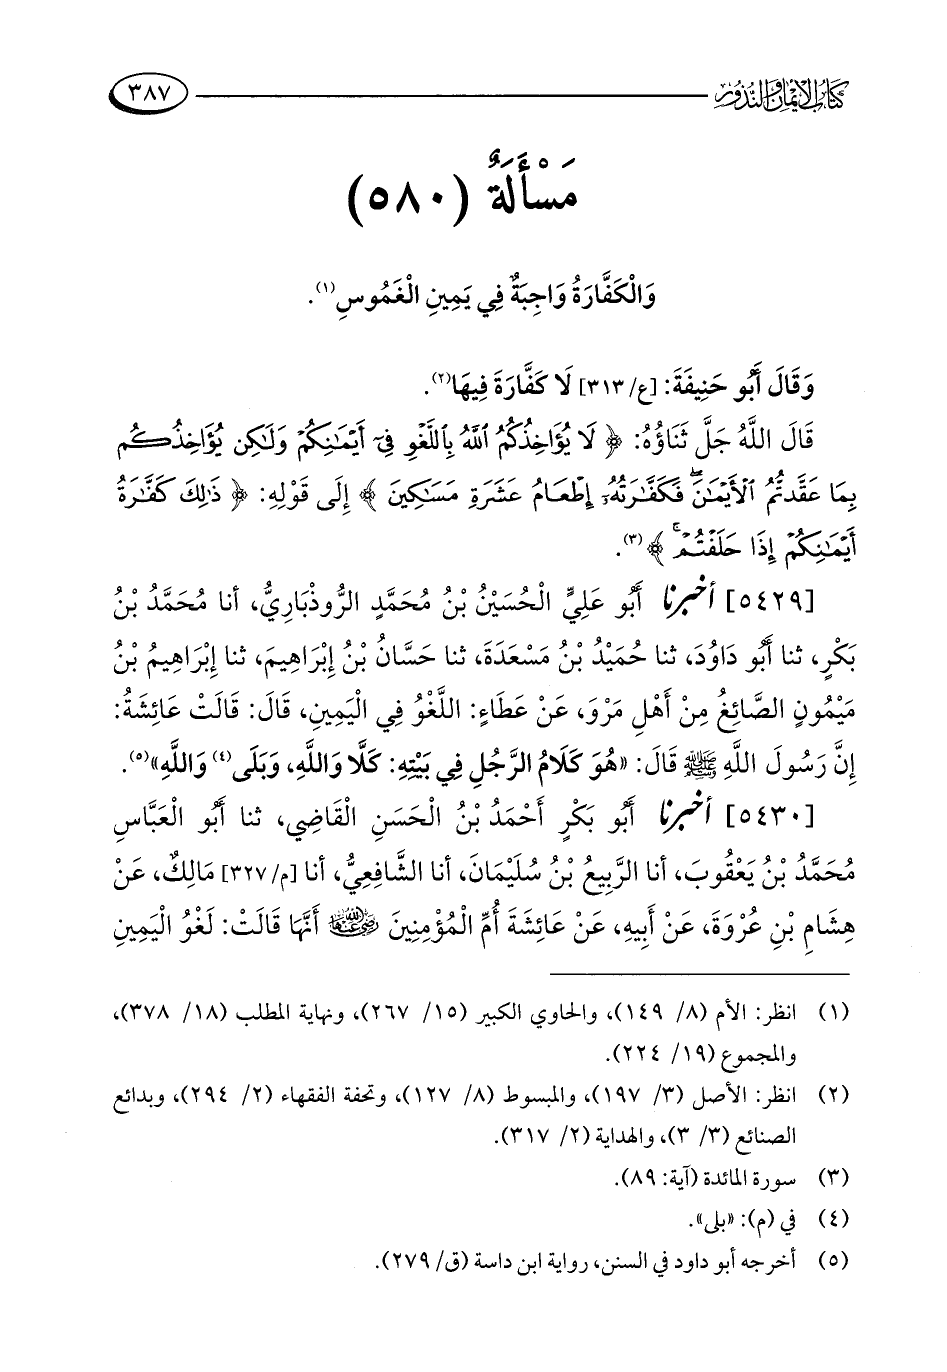 كتاب الأيمان والنذور ٣٨٧
مَسْأَلَةٌ (٥٨٠)
وَالْكَفَّارَةُ وَاجِبَةٌ فِي يَمِينِ الْغَمُوسِ(١).
وَقَالَ أَبُو حَنِيفَةَ: [ع/ ٣١٣] لَا كَفَّارَةَ فِيهَا(٢).
قَالَ اللَّهُ جَلَّ ثَنَاؤُهُ: ﴿ لَا يُؤَاخِذُكُمُ ٱللَّهُ بِٱللَّغْوِ فِىٓ أَيْمَٰنِكُمْ وَلَٰكِن يُؤَاخِذُكُم
بِمَا عَقَّدتُّمُ ٱلْأَيْمَٰنَ ۖ فَكَفَّٰرَتُهُۥٓ إِطْعَامُ عَشَرَةِ مَسَٰكِينَ ﴾ إِلَى قَوْلِهِ: ﴿ ذَٰلِكَ كَفَّٰرَةُ
أَيْمَٰنِكُمْ إِذَا حَلَفْتُمْ ۚ ﴾(٣).
[٥٤٢٩] أخبرنا أَبُو عَلِيٍّ الْحُسَيْنُ بْنُ مُحَمَّدٍ الرُّوذْبَارِيُّ، أنا مُحَمَّدُ بْنُ
بَكْرٍ، ثنا أَبُو دَاوُدَ، ثنا حُمَيْدُ بْنُ مَسْعَدَةَ، ثنا حَسَّانُ بْنُ إِبْرَاهِيمَ، ثنا إِبْرَاهِيمُ بْنُ
مَيْمُونٍ الصَّائِغُ مِنْ أَهْلِ مَرْوَ، عَنْ عَطَاءٍ: اللَّغْوُ فِي الْيَمِينِ، قَالَ: قَالَتْ عَائِشَةُ:
إِنَّ رَسُولَ اللَّهِ ﷺ قَالَ: «هُوَ كَلَامُ الرَّجُلِ فِي بَيْتِهِ: كَلَّا وَاللَّهِ، وَبَلَى(٤) وَاللَّهِ»(٥).
[٥٤٣٠] أخبرنا أَبُو بَكْرٍ أَحْمَدُ بْنُ الْحَسَنِ الْقَاضِي، ثنا أَبُو الْعَبَّاسِ
مُحَمَّدُ بْنُ يَعْقُوبَ، أنا الرَّبِيعُ بْنُ سُلَيْمَانَ، أنا الشَّافِعِيُّ، أنا [م/ ٣٢٧] مَالِكٌ، عَنْ
هِشَامِ بْنِ عُرْوَةَ، عَنْ أَبِيهِ، عَنْ عَائِشَةَ أُمِّ الْمُؤْمِنِينَ رضي الله عنها أَنَّهَا قَالَتْ: لَغْوُ الْيَمِينِ
(١) انظر: الأم (٨/ ١٤٩)، والحاوي الكبير (١٥/ ٢٦٧)، ونهاية المطلب (١٨/ ٣٧٨)،
والمجموع (١٩/ ٢٢٤).
(٢) انظر: الأصل (٣/ ١٩٧)، والمبسوط (٨/ ١٢٧)، وتحفة الفقهاء (٢/ ٢٩٤)، وبدائع
الصنائع (٣/ ٣)، والهداية (٢/ ٣١٧).
(٣) سورة المائدة (آية: ٨٩).
(٤) في (م): «بلى».
(٥) أخرجه أبو داود في السنن، رواية ابن داسة (ق/ ٢٧٩).